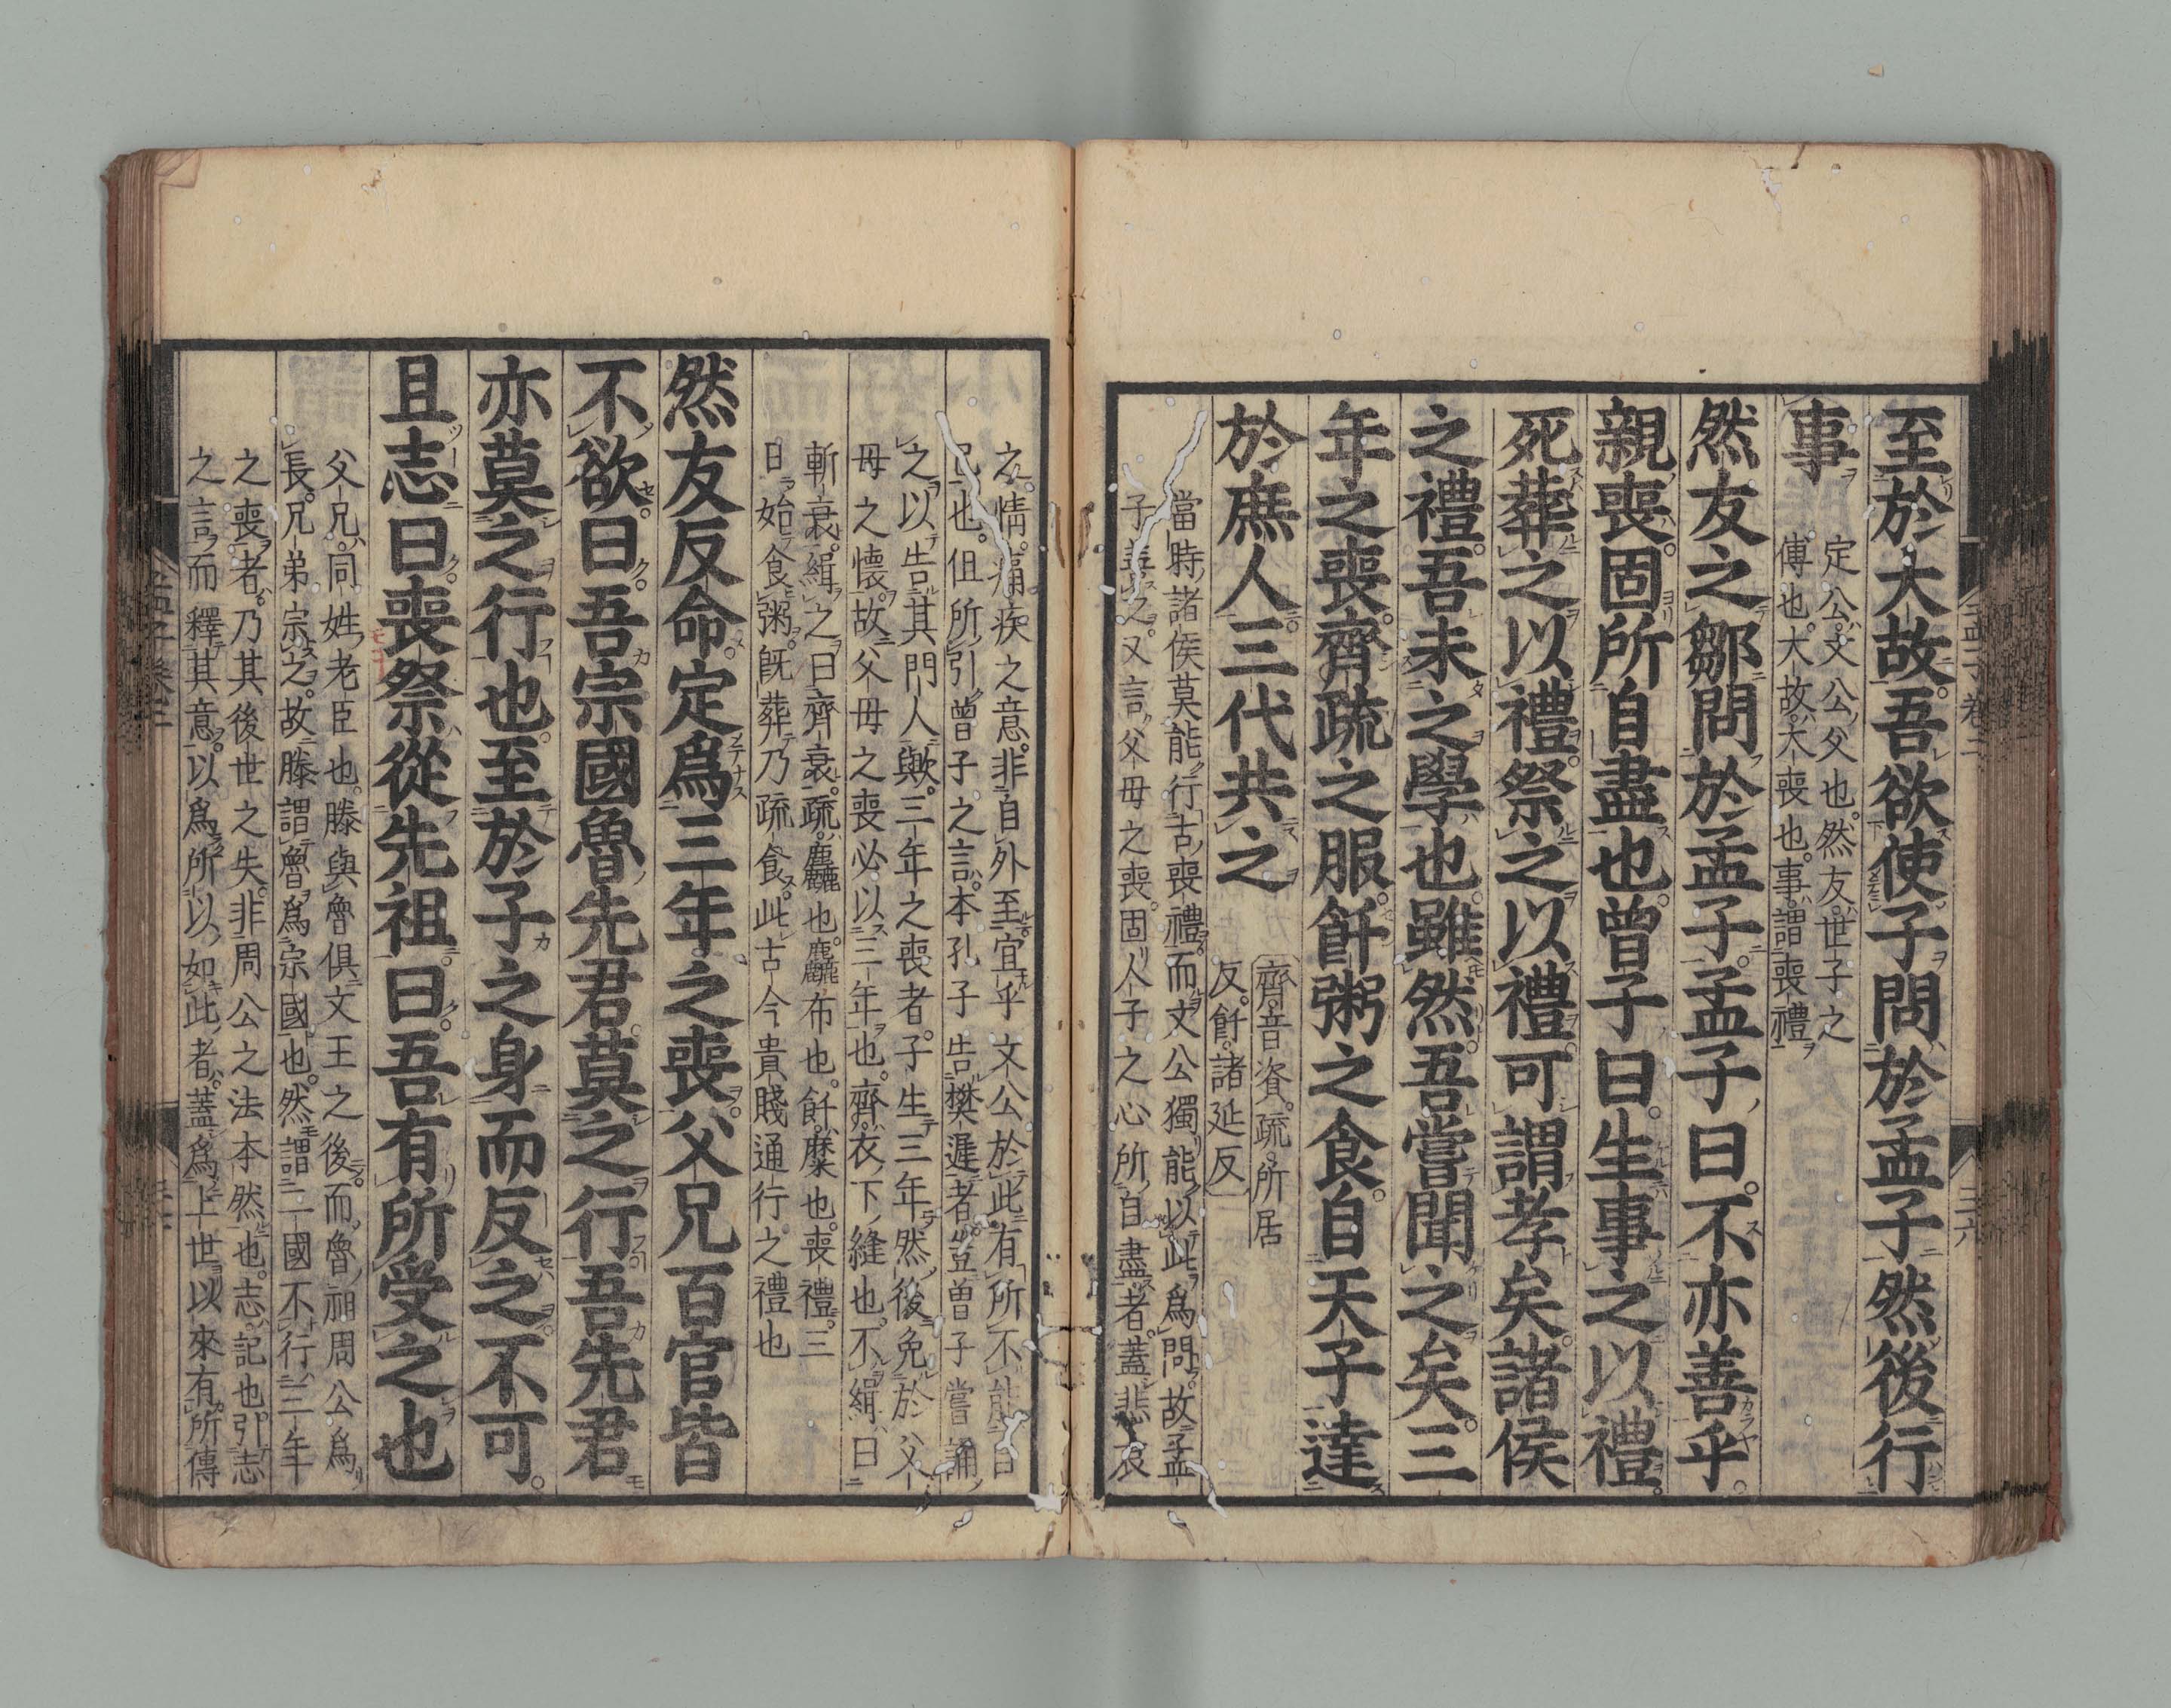 至於大故吾欲使子問於孟子然後行
事
定公文公父也然友世子之
傅也大故大喪也事謂喪禮
然友之鄒問於孟子孟子曰不亦善乎
親喪固所自盡也曾子曰生事之以禮
死葬之以禮祭之以禮可謂孝矣諸侯
之禮吾未之學也雖然吾嘗聞之矣三
年之喪齊疏之服飦粥之食自天子達
於庶人三代共之
齊音資疏所居
反飦諸延反
當時諸侯莫能行古喪禮而文公獨能以此爲問故孟
子善之又言父母之喪固人子之心所自盡者蓋悲哀
之情痛疾之意非自外至宜乎文公於此有所不能自
已也但所引曾子之言本孔子告樊遲者豈曾子嘗誦
之以告其門人歟三年之喪者子生三年然後免於父
母之懷故父母之喪必以三年也齊衣下縫也不緝曰
斬衰緝之曰齊衰疏麤也麤布也飦糜也喪禮三
日始食粥既葬乃疏食此古今貴賤通行之禮也
然友反命定爲三年之喪父兄百官皆
不欲曰吾宗國魯先君莫之行吾先君
亦莫之行也至於子之身而反之不可
且志曰喪祭從先祖曰吾有所受之也
父兄同姓老臣也滕與魯俱文王之後而魯祖周公爲
長兄弟宗之故滕謂魯爲宗國也然謂二國不行三年
之喪者乃其後世之失非周公之法本然也志記也引志
之言而釋其意以爲所以如此者蓋爲上世以來有所傳
孟子卷三
三六